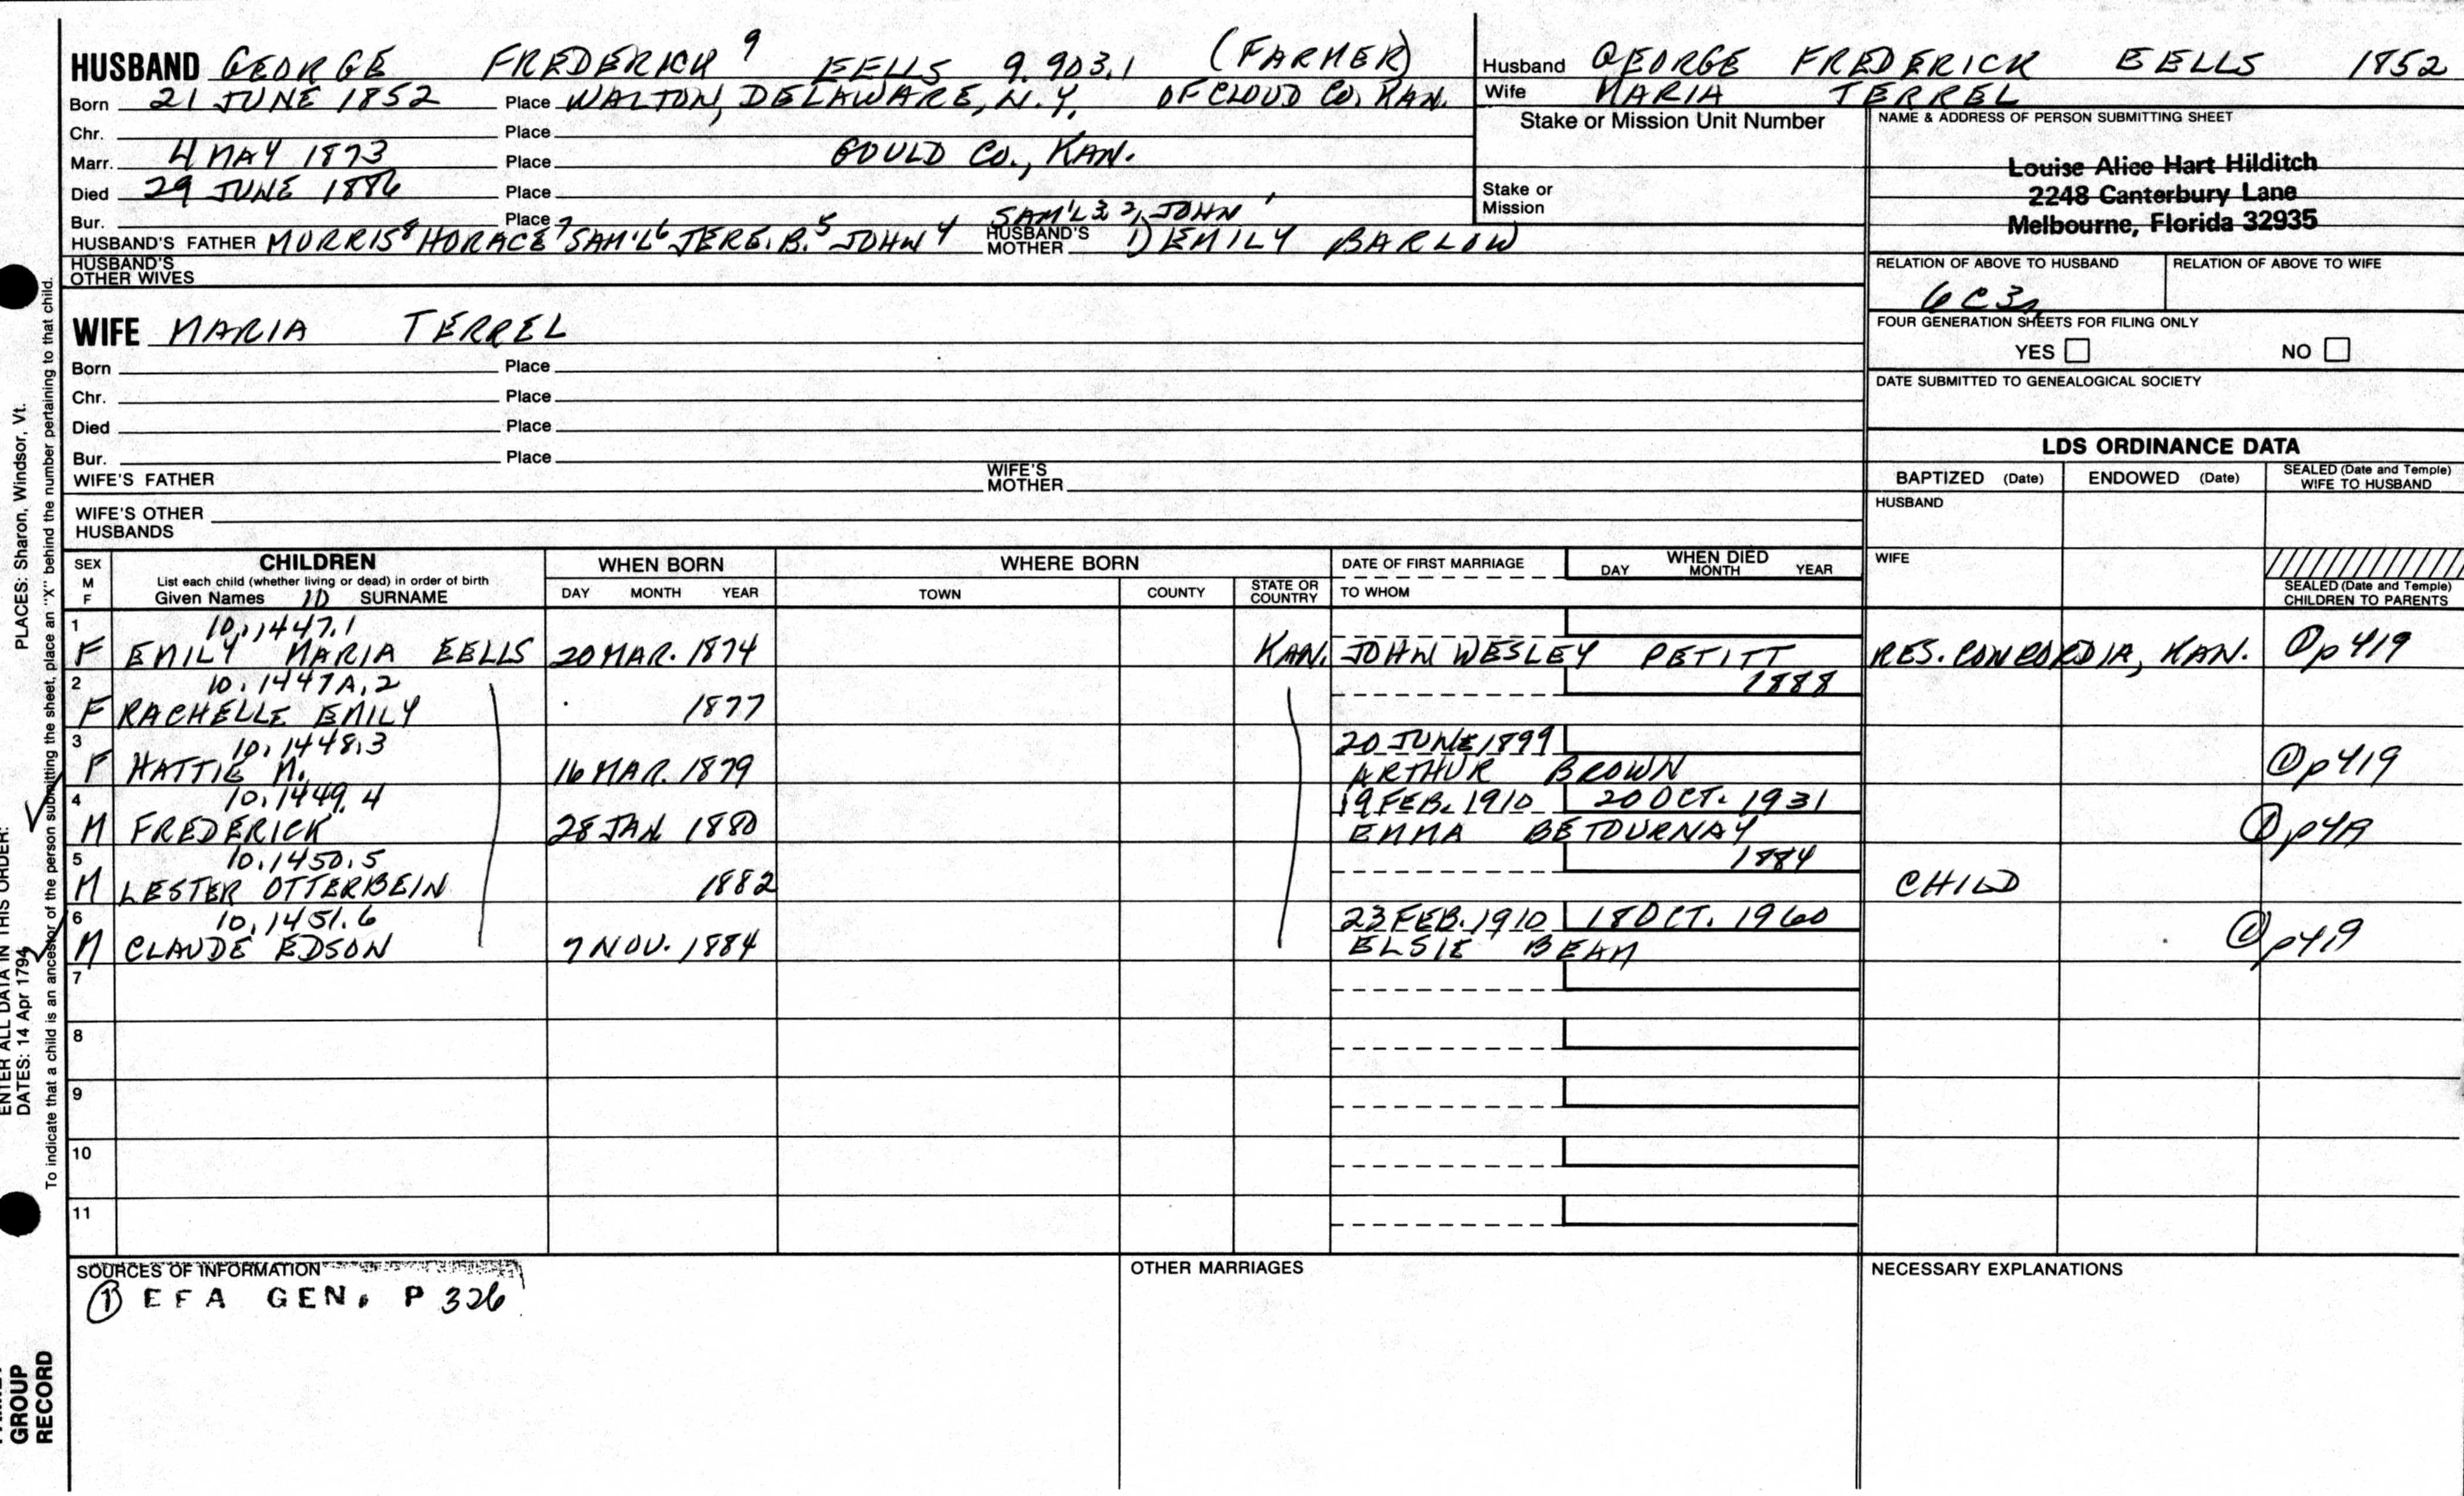 HUSBAND GEORGE FREDERICK 9 EELLS 9.903.1 (FARMER)
Born 21 JUNE 1852 Place WALTON, DELAWARE, N.Y. OF CLOUD CO, KAN.
Chr. Place
Marr. 4 MAY 1873 Place GOULD CO., KAN.
Died 29 JUNE 1886 Place
Bur. Place SAM'L 3 2, JOHN 1
HUSBAND'S FATHER MORRIS 8 HORACE 7 SAM'L 6 JERE. B. 5 JOHN 4 HUSBAND'S MOTHER 1) EMILY BARLOW
HUSBAND'S OTHER WIVES
WIFE MARIA TERREL
Born Place
Chr. Place
Died Place
Bur. Place
WIFE'S FATHER WIFE'S MOTHER
WIFE'S OTHER HUSBANDS
Husband GEORGE FREDERICK EELLS 1852
Wife MARIA TERREL
Stake or Mission Unit Number
Stake or Mission
NAME & ADDRESS OF PERSON SUBMITTING SHEET
Louise Alice Hart Hilditch
2248 Canterbury Lane
Melbourne, Florida 32935
RELATION OF ABOVE TO HUSBAND RELATION OF ABOVE TO WIFE
6C3r
FOUR GENERATION SHEETS FOR FILING ONLY
YES NO
DATE SUBMITTED TO GENEALOGICAL SOCIETY
LDS ORDINANCE DATA
BAPTIZED (Date) ENDOWED (Date) SEALED (Date and Temple) WIFE TO HUSBAND
HUSBAND
WIFE
SEALED (Date and Temple) CHILDREN TO PARENTS
SEX M F CHILDREN WHEN BORN WHERE BORN DATE OF FIRST MARRIAGE WHEN DIED
List each child (whether living or dead) in order of birth DAY MONTH YEAR
Given Names ID SURNAME DAY MONTH YEAR TOWN COUNTY STATE OR COUNTRY TO WHOM
1 10.1447.1
F EMILY MARIA EELLS 20 MAR. 1874 KAN. JOHN WESLEY PETITT RES. CONCORDIA, KAN. ① p 419
2 10.1447A.2 1888
F RACHELLE EMILY 1877
3 10.1448.3 20 JUNE 1899
F HATTIE M. 16 MAR. 1879 ARTHUR BROWN ① p 419
4 10.1449.4 19 FEB. 1910 20 OCT. 1931
M FREDERICK 28 JAN 1880 EMMA BETOURNAY ① p 419
5 10.1450.5 1884
M LESTER OTTERBEIN 1882 CHILD
6 10.1451.6 23 FEB. 1910 18 OCT. 1960
M CLAUDE EDSON 7 NOV. 1884 ELSIE BEAM ① p 419
7
8
9
10
11
SOURCES OF INFORMATION OTHER MARRIAGES NECESSARY EXPLANATIONS
① EFA GEN. P 326
ENTER ALL DATA IN THIS ORDER:
DATES: 14 Apr 1794 PLACES: Sharon, Windsor, Vt.
To indicate that a child is an ancestor of the person submitting the sheet, place an "X" behind the number pertaining to that child.
GROUP
RECORD